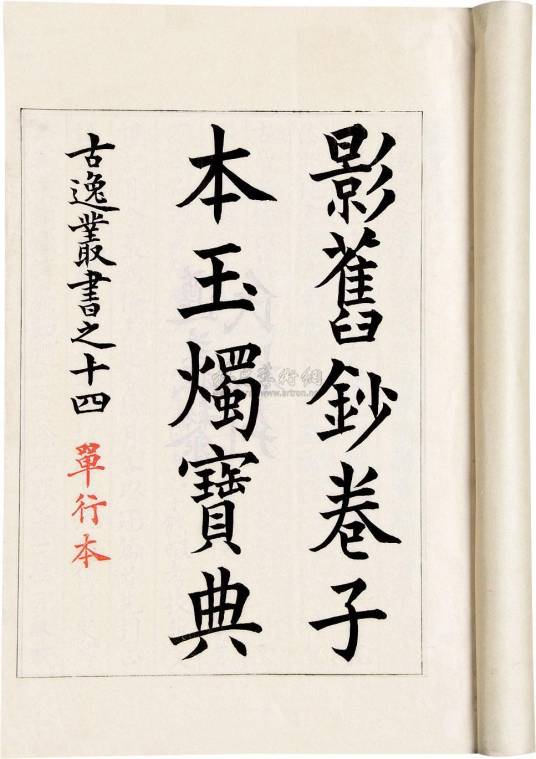 影舊鈔卷子
本玉燭寶典
古逸叢書之十四 單行本
www.artron.net